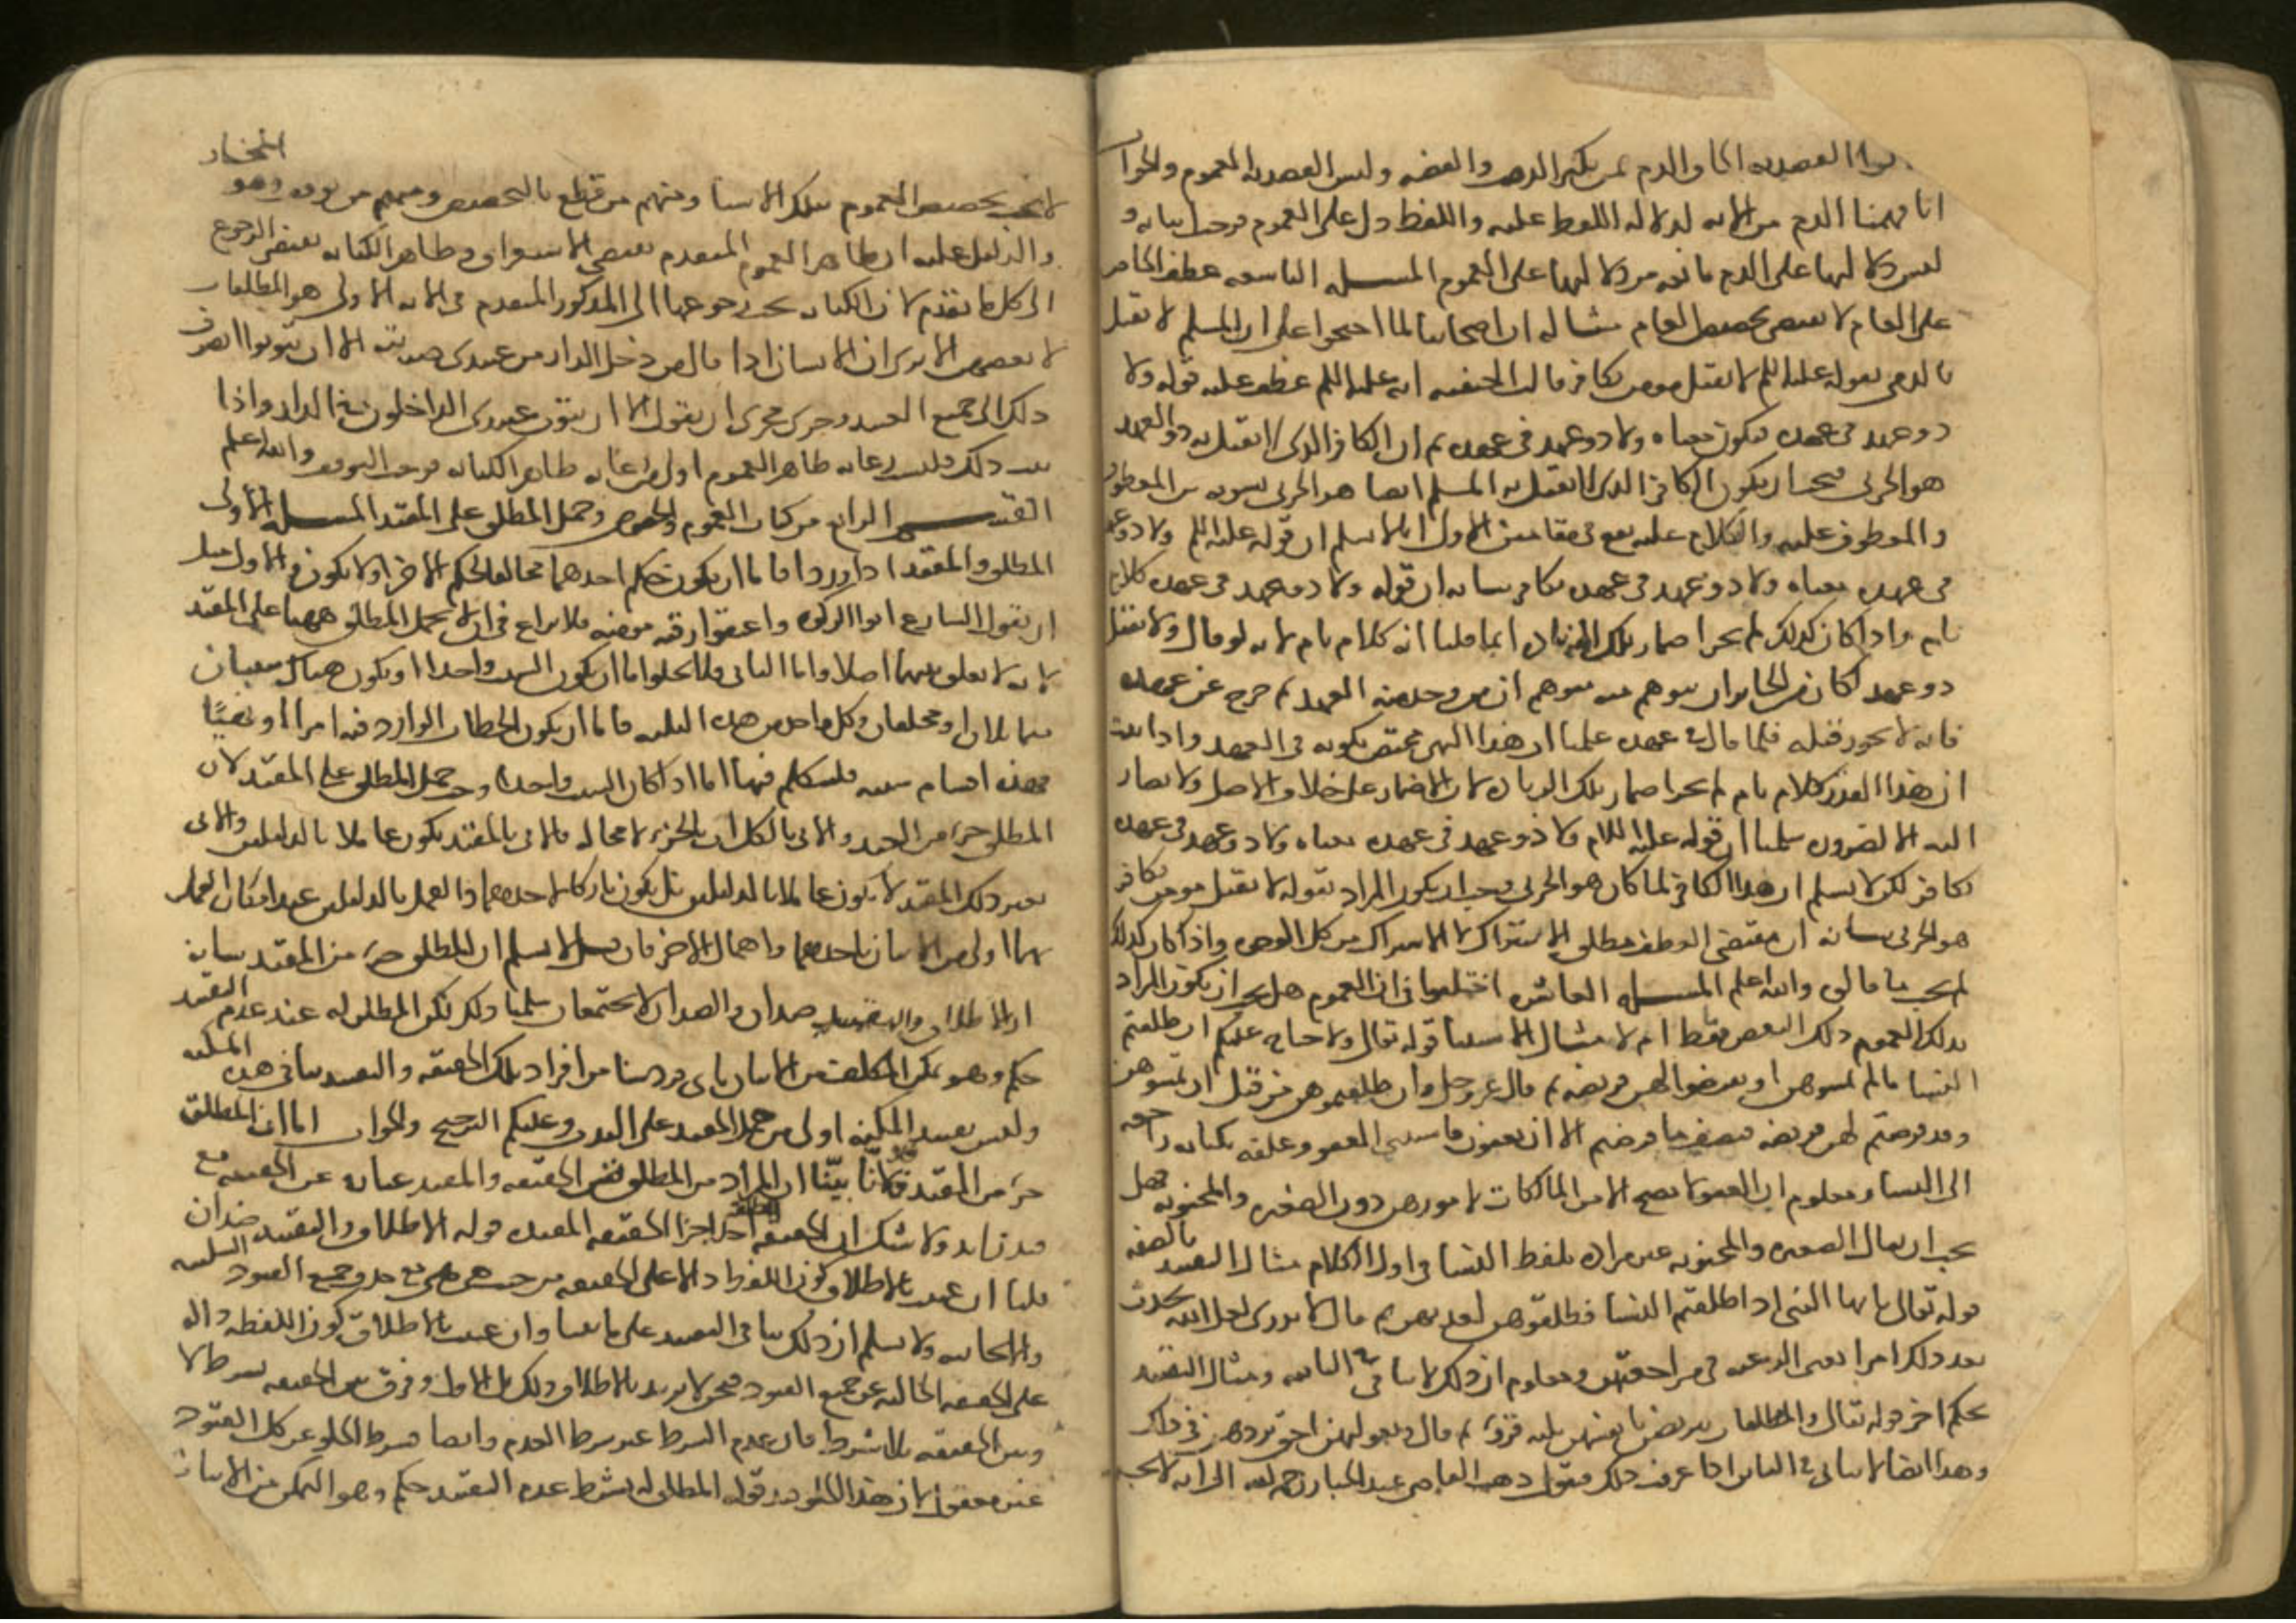 قالوا القصد به الحاق الذم بمن يكنز الذهب والفضه وليس القصد به العموم والجواب
انا فهمنا الذم من الايه لدلاله اللفظ عليه واللفظ دل على العموم فوجب اثباته و
ليس دلالتها على الذم مانعه من دلالتها على العموم المسله التاسعه عطف الخاص
على العام لا يقتضي تخصيص العام مثاله ان اصحابنا لما احتجوا على ان المسلم لا يقتل
بالذمي بقوله عليه السلم لا يقتل مومن بكافر قالت الحنفيه انه عليه السلم عطف عليه قوله ولا
ذو عهد في عهده فيكون معناه ولا ذو عهد في عهده ثم ان الكافر الذي لا يقتل به ذو العهد
هو الحربي فيجب ان يكون الكافر الذي لا يقتل به المسلم ايضا هو الحربي تسويه بين المعطوف
والمعطوف عليه والكلام عليه يقع في مقامين الاول انا لا نسلم ان قوله عليه السلم ولا ذو عهد
في عهده معناه ولا ذو عهد في عهده بكافر بيانه ان قوله ولا ذو عهد في عهده كلام
تام واذا كان كذلك لم يجز اضمار تلك الزياده انما قلنا انه كلام تام لانه لو قال ولا يقتل
ذو عهد لكان من الجايز ان يتوهم منه متوهم ان من وجد منه العهد ثم خرج عن عهده
فانه لا يجوز قتله فلما قال في عهده علمنا ان هذا النهي مختص بكونه في العهد واذا ثبت
ان هذا القدر كلام تام لم يجز اضمار تلك الزياده لان الاضمار على خلاف الاصل ولا يصار
اليه الا لضروره سلمنا ان قوله عليه السلام ولا ذو عهد في عهده معناه ولا ذو عهد في عهده
بكافر لكن لا نسلم ان هذا الكافر لما كان هو الحربي وجب ان يكون المراد بقوله لا يقتل مومن بكافر
هو الحربي بيانه ان مقتضى العطف مطلق الاشتراك لا الاشتراك من كل الوجوه واذا كان كذلك
لم يجب ما قالوه والله اعلم المسله العاشره اختلفوا في ان العموم هل يجب ان يكون المراد
بذلك العموم ذلك البعض فقط ام لا مثال الاستثنا قوله تعالى ولا جناح عليكم ان طلقتم
النسا ما لم تمسوهن او تفرضوا لهن فريضه ثم قال عز وجل وان طلقتموهن من قبل ان تمسوهن
وقد فرضتم لهن فريضه فنصف ما فرضتم الا ان يعفون فاستثنى العفو وعلقه بكنايه راجعه
الى النسا ومعلوم ان العفو لا يصح الا من المالكات لامورهن دون الصغيره والمجنونه فهل
يجب ان يقال الصغيره والمجنونه غير مراده بلفظ النسا في اول الكلام مثال التقييد بالصفه
قوله تعالى يايها النبي اذا طلقتم النسا فطلقوهن لعدتهن ثم قال لا تدري لعل الله يحدث
بعد ذلك امرا يعني الرغبه في مراجعتهن ومعلوم ان ذلك لا يتاتى في الباينه ومثال التقييد
بحكم اخر قوله تعالى والمطلقات يتربصن بانفسهن ثلثه قروء ثم قال وبعولتهن احق بردهن في ذلك
وهذا ايضا لا يتاتى في الباين اذا عرفت ذلك فنقول ذهب القاضي عبد الجبار رحمه الله الى انه لا يجب
لا يجب تخصيص العموم بتلك الاشيا ومنهم من قطع بالتخصيص ومنهم من توقف وهو المختار
والدليل عليه ان ظاهر العموم المتقدم يقتضي الاستغراق وظاهر الكنايه يقتضي الرجوع
الى كل ما تقدم لان الكنايه يجب رجوعها الى المذكور المتقدم في الايه الاولى هو المطلقات
لا بعضهن الا ترى ان الانسان اذا قال من دخل الدار من عبيدي ضربته الا ان يتوبوا انصرف
ذلك الى جميع العبيد وجرى مجرى ان يقول الا ان يتوب عبيدي الداخلون في الدار واذا
ثبت ذلك فليس رعايه ظاهر العموم اولى من رعايه ظاهر الكنايه فوجب التوقف والله اعلم
القسم الرابع من كتاب العموم والخصوص في حمل المطلق على المقيد المسله الاولى
المطلق والمقيد اذا وردا فاما ان يكون حكم احدهما مخالفا لحكم الاخر او لا يكون والاول مثل
ان يقول الشارع اتوا الزكوه واعتقوا رقبه مومنه فلا نزاع في انه لا يحمل المطلق ههنا على المقيد
لانه لا تعلق بينهما اصلا واما الثاني فلا يخلوا اما ان يكون السبب واحدا او يكون هناك سببان
متماثلان او مختلفان وكل واحد من هذه الثلثه فاما ان يكون الخطاب الوارد فيه امرا او نهيًا
فهذه اقسام سته فلنتكلم فيها اما اذا كان السبب واحدا وجب حمل المطلق على المقيد لان
المطلق جزء من المقيد والاتي بالكل ات بالجزء لا محاله فالاتي بالمقيد يكون عاملا بالدليلين والاتي
بغير ذلك المقيد لا يكون عاملا بالدليلين بل يكون تاركا لاحدهما والعمل بالدليلين عند امكان العمل
بهما اولى من الاتيان باحدهما واهمال الاخر فان قيل لا نسلم ان المطلق جزء من المقيد بيانه
ان الاطلاق والتقييد ضدان والضدان لا يجتمعان سلمنا ذلك لكن المطلق له عند عدم التقييد
حكم وهو تمكن المكلف من الاتيان باي فرد شا من افراد تلك الحقيقه والتقييد ينافي هذه المكنه
وليس تقييد المكنه اولى من حمل المقيد على الندب وعليكم الترجيح والجواب اما ان المطلق
جزء من المقيد فلانّا بيّنّا ان المراد من المطلق نفس الحقيقه والمقيد عباره عن الحقيقه مع
قيد زايد ولا شك ان الحقيقه احد اجزا الحقيقه المقيده قوله الاطلاق والتقييد ضدان
قلنا ان عنيت بالاطلاق كون اللفظ دالا على الحقيقه من حيث هي هي مع حذف جميع القيود السلبيه
والايجابيه ولا نسلم ان ذلك ينافي التقييد على ما بينا وان عنيت بالاطلاق كون اللفظه داله
على الحقيقه الخاليه عن جميع القيود فنحن لا نريد بالاطلاق ذلك بل الاول وفرق بين الحقيقه بشرط لا
وبين الحقيقه بلا شرط فان عدم الشرط غير شرط العدم وايضا فشرط الخلو عن كل القيود
غير معقول لان هذا الخلو قيد قوله المطلق له بشرط عدم التقييد حكم وهو التمكن من الاتيان